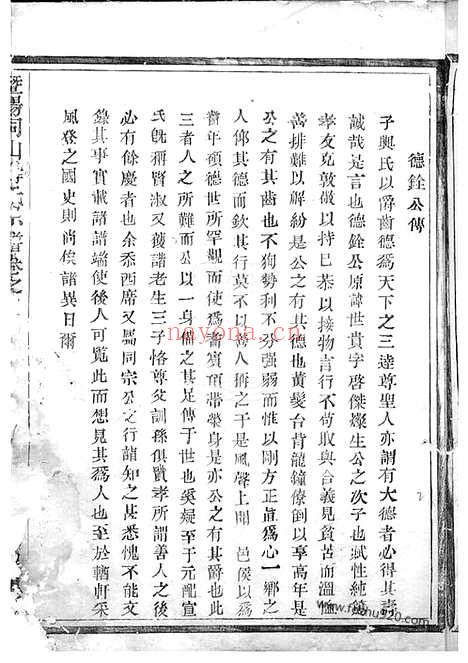 德銓公傳
子輿氏以爵齒德爲天下之三達尊聖人亦謂有大德者必得其壽
誠哉是言也德銓公原諱世貴字啓傑燦生公之次子也賦性純
孝友克敦敬以持已恭以接物言行不苟取與合義見貧苦而濟
排難以解紛是公之有其德也黃髮台背龍鐘僚倒以享高年是
公之有其齒也不狥勢利不分強弱而惟以剛方正直爲心一鄉之
人仰其德而欽其行莫不以鄉人稱之于是風聲上聞 邑侯以爲
年碩德世所罕觀而使爲賓頂帶榮身是亦公之有其爵也此
三者人之所難而公以一身備之其足傳于世也奚疑至于元配宣
氏旣稱賢淑又獲諧老生三子恪尊父訓孫俱賢孝所謂善人之後
必有餘慶者也余忝西席又屬同宗公之行誼知之甚悉愧不能文
錄其事實載諸譜端使後人可覧此而想見其爲人也至於輶軒采
風登之國史則尚俟諸異日爾
暨陽同山
nayona.cn